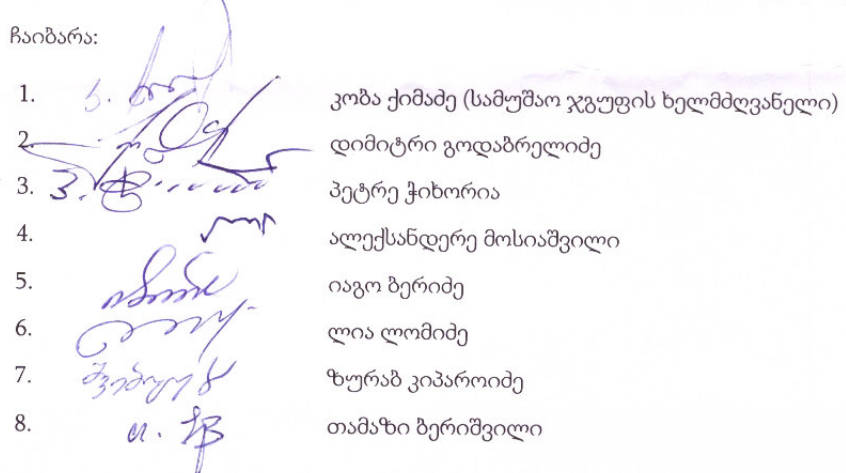 ჩაიბარა:
1. კობა ქიმაძე (სამუშაო ჯგუფის ხელმძღვანელი)
2. დიმიტრი გოდაბრელიძე
3. პეტრე ჭიხორია
4. ალექსანდერე მოსიაშვილი
5. იაგო ბერიძე
6. ლია ლომიძე
7. ზურაბ კიპაროიძე
8. თამაზი ბერიშვილი